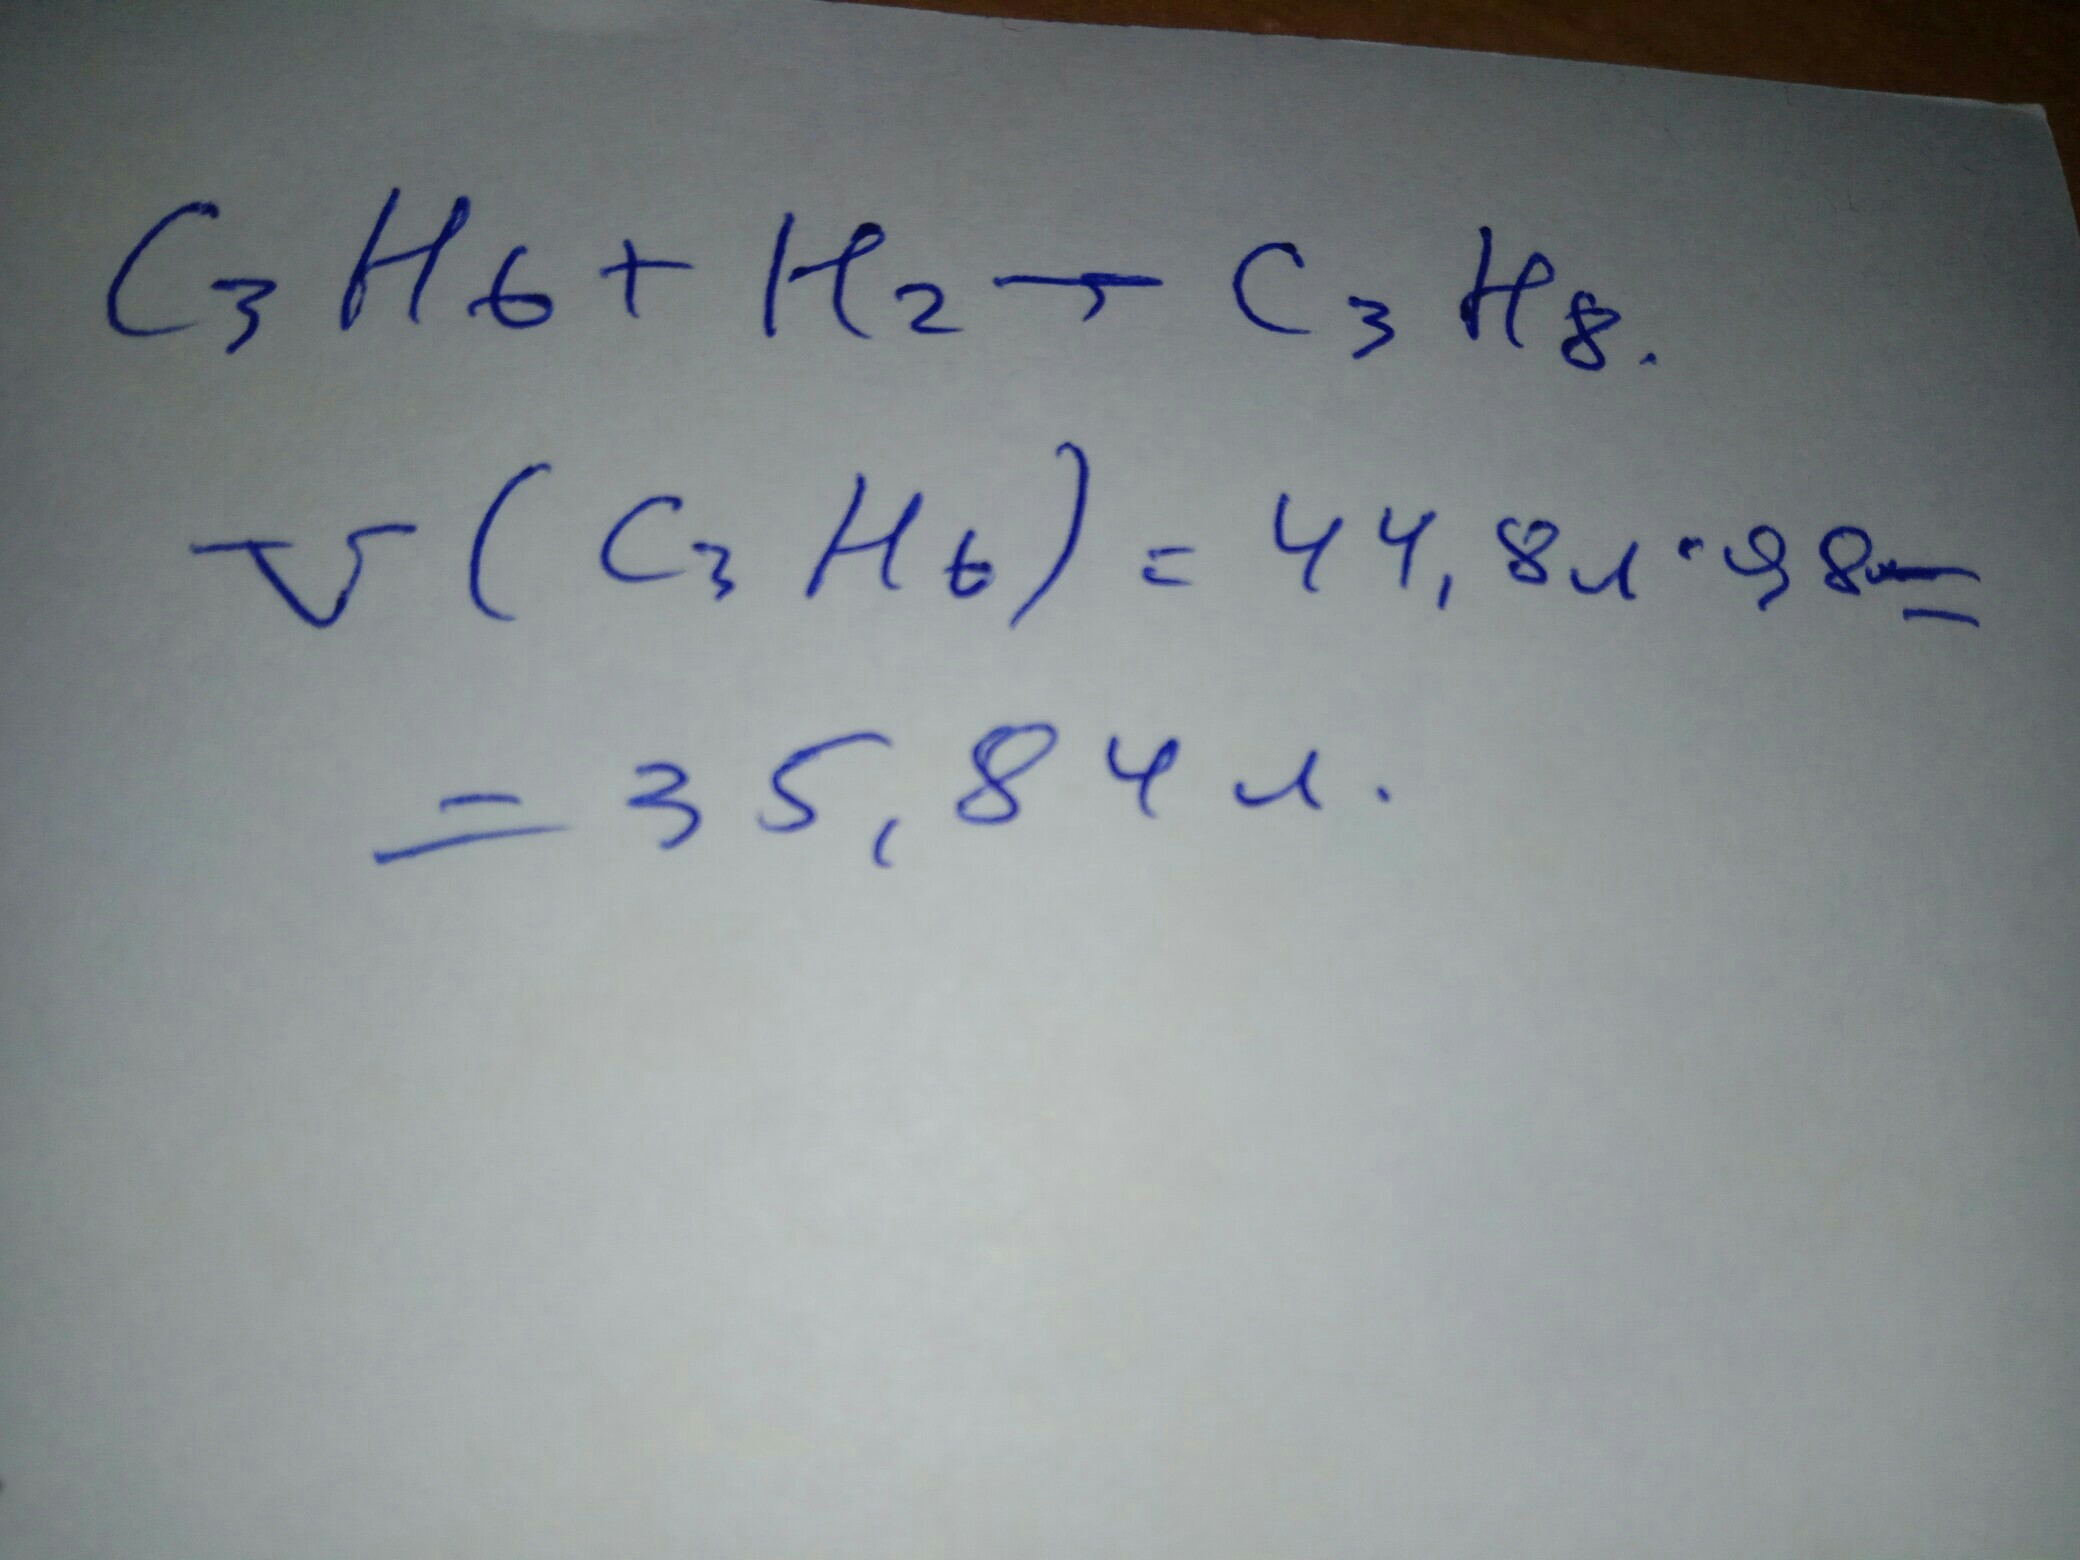 C₃H₆ + H₂ → C₃H₈.
V(C₃H₆) = 44,8л · 98 =
= 35,84 л.